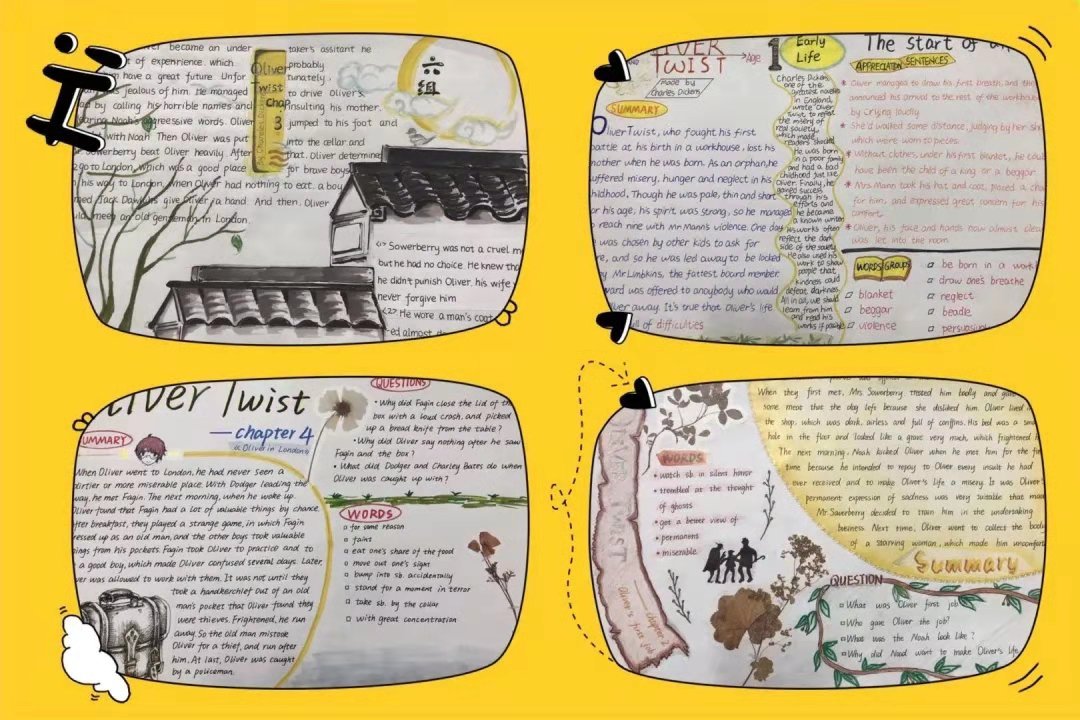 became an under
taker's assitant he
of expenrience. which
probably
have a great future. Unfor
tunately,
jealous of him. He managed
to drive Oliver's
by calling his horrible names and
insulting his mother.
aggressive words. Oliver
jumped to his foot and
with Noah. Then Oliver was put
into the cellar and
Sowerberry beat Oliver heavily. After
that, Oliver determine
go to London, which was a good place
for brave boys
his way to London, when Oliver had nothing to eat. a boy
Jack give Oliver a hand. And then. Oliver
meet an old gentleman in London.
Oliver
Twist
chap
3
六
组
<1> Sowerberry was not a cruel m
but he had no choice. He knew tha
he didn't punish Oliver, his wife
never forgive him
<2> He wore a man's coat
ed almost
TWIST
Age
made by
Charles Dickens
SUMMARY
Oliver Twist, who fought his first
battle at his birth in a workhouse, lost his
mother when he was born. As an orphan, he
suffered misery, hunger and neglect in his
childhood. Though he was pale, thin and short
for his age, his spirit was strong, so he manage
reach nine with Mr Mann's violence. One day
was chosen by other kids to ask for
re, and so he was led away to be locked
by Mr Limbkins, the fattest board member.
ward was offered to anoybody who would
iver away. It's true that Oliver's life
ull of difficulties
1
Early
Life
Charles Dickens,
one of the
greatest novelis
in England,
wrote Oliver
Twist to reflet
the misery of
real society,
which made
readers shocked
He was born
in a poor family
and had a bad
childhood just like
Oliver. Finally, he
gained success
through his
efforts and
he became
a known writer
His works often
reflect the dark
side of the society
He also used his
work to show
people that
kindness could
defeat darkness
All in all, we should
learn from him
and read his
works if possible
The start of
APPRECIATION SENTENCES
* Oliver managed to draw his first breath, and the
announced his arrival to the rest of the workhouse
by crying loudly.
* She'd walked some distance, judging by her sho
which were worn to pieces.
* Without clothes, under his first blanket, he coul
have been the child of a king or a beggar.
* Mrs. Mann took his hat and coat, placed a cha
for him, and expressed great concern for his
comfort.
* Oliver, his face and hands now almost clea
was let into the room.
WORDS GROUPS
blanket
beggar
violence
be born in a work
draw one's breathe
neglect
beadle
persuasiv
Oliver Twist
—chapter 4
Oliver in London
UMMARY
When Oliver went to London, he had never seen a
dirtier or more miserable place. With Dodger leading the
way, he met Fagin. The next morning, when he woke up,
Oliver found that Fagin had a lot of valuable things by chance.
After breakfast, they played a strange game, in which Fagin
ressed up as an old man, and the other boys took valuable
ings from his pockets. Fagin took Oliver to practice and to
a good boy, which made Oliver confused several days. Later,
ver was allowed to work with them. It was not until they
took a handkerchief out of an old
man's pocket that Oliver found they
were thieves. Frightened, he run
away. So the old man mistook
Oliver for a thief, and run after
him. At last, Oliver was caught
by a policeman.
QUESTIONS
• Why did Fagin close the lid of th
box with a loud crash, and picked
up a bread knife from the table?
• Why did Oliver say nothing after he saw
Fagin and the box?
• What did Dodger and Charley Bates do when
Oliver was caught up with?
WORDS
for some reason
faint
eat one's share of the food
move out one's sight
bump into sb. accidentally
stand for a moment in terror
take sb. by the collar
with great concentration
OLIVER TWIST
Oliver's first job
WORDS
• watch sb in silent horror
• trembled at the thought
of ghosts
• get a better view of
• permanent
• miserable
When they first met, Mrs. Sowerberry treated him badly and gave
some meat that the dog left because she disliked him. Oliver lived in
the shop, which was dark, airless and full of coffins. His bed was a sma
hole in the floor and looked like a grave very much, which frightened h
The next morning, Noah kicked Oliver when he met him for the fir
time because he intended to repay to Oliver every insult he had
ever received and to make Oliver's life a misery. It was Oliver'
permanent expression of sadness was very suitable that mad
Mr Sowerberry decided to train him in the undertaking
business. Next time, Oliver went to collect the body
of a starving woman, which made him uncomfort
Summary
QUESTION
What was Oliver first job
Who gave Oliver the job?
What was the Noah look like?
Why did Noad want to make Oliver's life